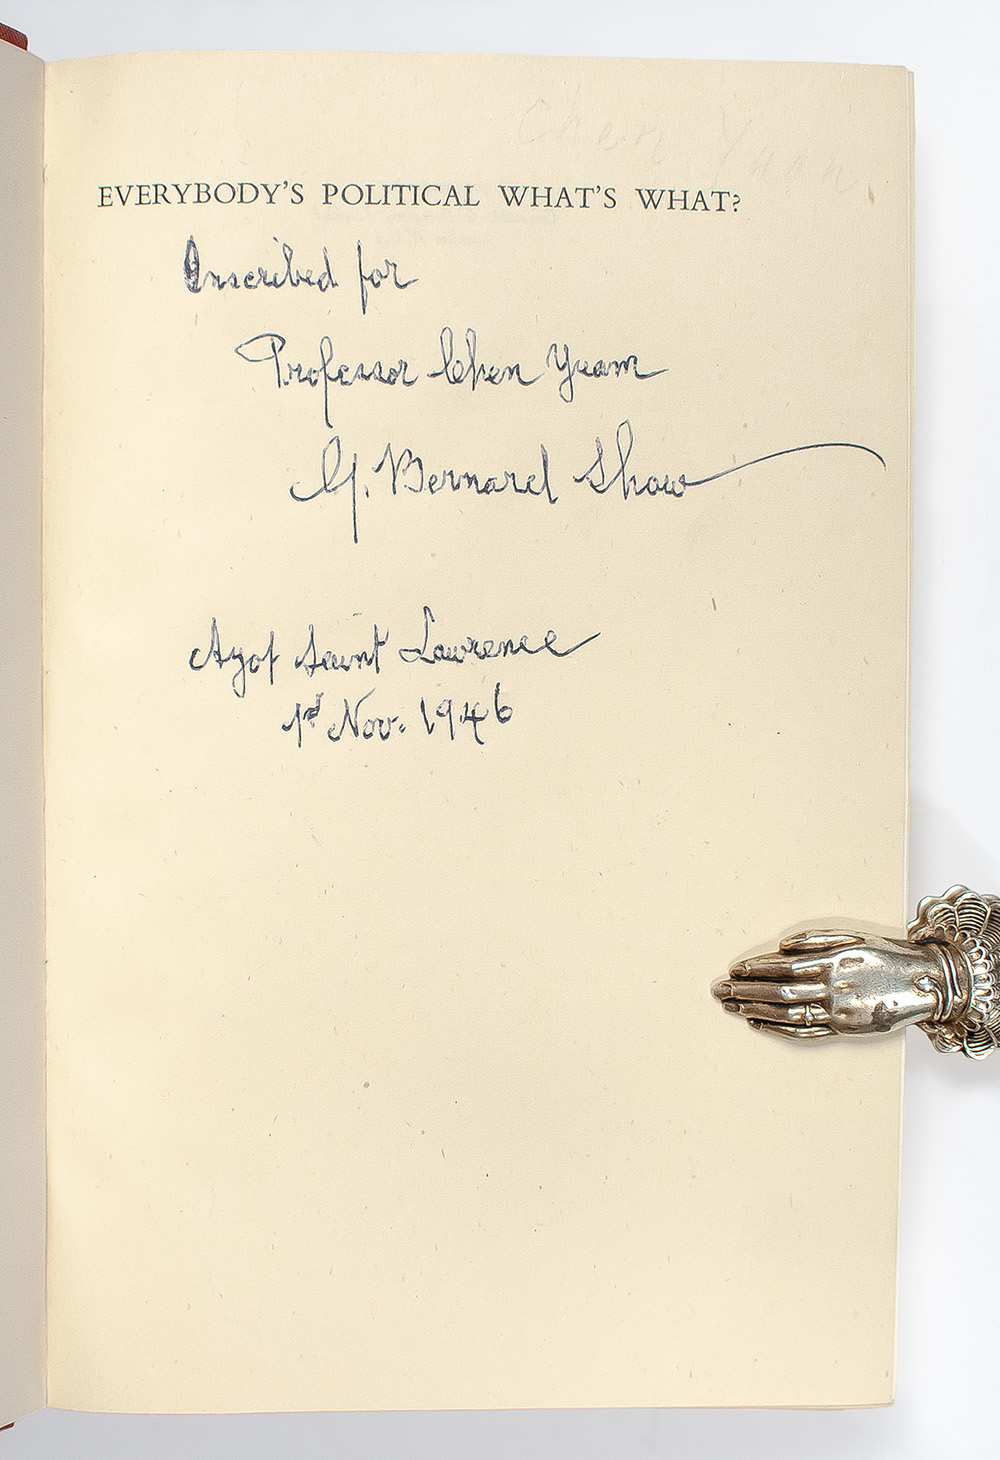 Chen Yuan
EVERYBODY'S POLITICAL WHAT'S WHAT?
Inscribed for
Professor Chen Yuam
G. Bernard Shaw
Ayot Saint Lawrence
1st Nov. 1946